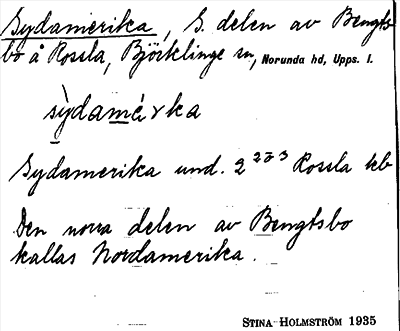 Sydamerika, S. delen av Bengts-
bo å Rossla, Björklinge sn, Norunda hd, Upps. l.
sỳdamérka
Sydamerika und. 2 2 3 Rossla
Den norra delen av Bengtsbo
kallas Nordamerika.
STINA HOLMSTRÖM 1935